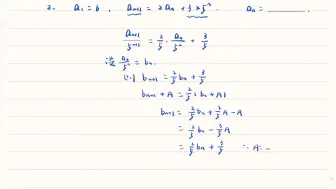 2. a₁=6, aₙ₊₁ = 2aₙ + 3×5ⁿ, aₙ = ____.
aₙ₊₁/5ⁿ⁺¹ = 2/5 · aₙ/5ⁿ + 3/5
设 aₙ/5ⁿ = bₙ
则 bₙ₊₁ = 2/5 bₙ + 3/5
bₙ₊₁ + A = 2/5 (bₙ + A)
bₙ₊₁ = 2/5 bₙ + 2/5 A − A
= 2/5 bₙ − 3/5 A
= 2/5 bₙ + 3/5 ∴ A = −